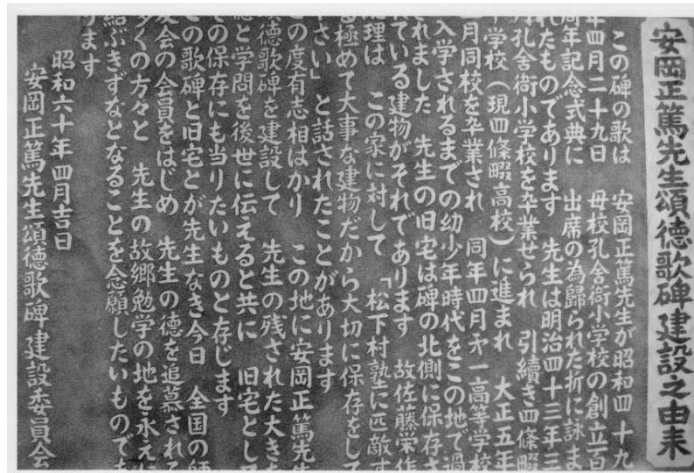 安岡正篤先生頌徳歌碑建設之由来
この碑の歌は 安岡正篤先生が昭和四十九
年四月二十九日 母校孔舎衙小学校の創立百
周年記念式典に 出席の為歸られた折に詠ま
れたものであります 先生は明治四十三年三
月孔舎衙小学校を卒業せられ 引続き四條畷
中学校(現四條畷高校)に進まれ 大正五年
三月同校を卒業され 同年四月才一高等学校
入学されるまでの幼少年時代をこの地で過
されました 先生の旧宅は碑の北側に保存さ
れている建物がそれであります 故佐藤栄作
総理は この家に対して 「松下村塾に匹敵す
る極めて大事な建物だから大切に保存をして
下さい」と話されたことがあります
この度有志相はかり この地に安岡正篤先生
頌徳歌碑を建設して 先生の残された大きな
徳と学問を後世に伝えると共に 旧宅とし
その保存にも当りたいものと存じます
この歌碑と旧宅とが先生なき今日 全国の師
友会の会員をはじめ 先生の徳を追慕される
多くの方々と 先生の故郷勉学の地を永えに
結ぶきずなとなることを念願したいものであ
ります
昭和六十年四月吉日
安岡正篤先生頌徳歌碑建設委員会